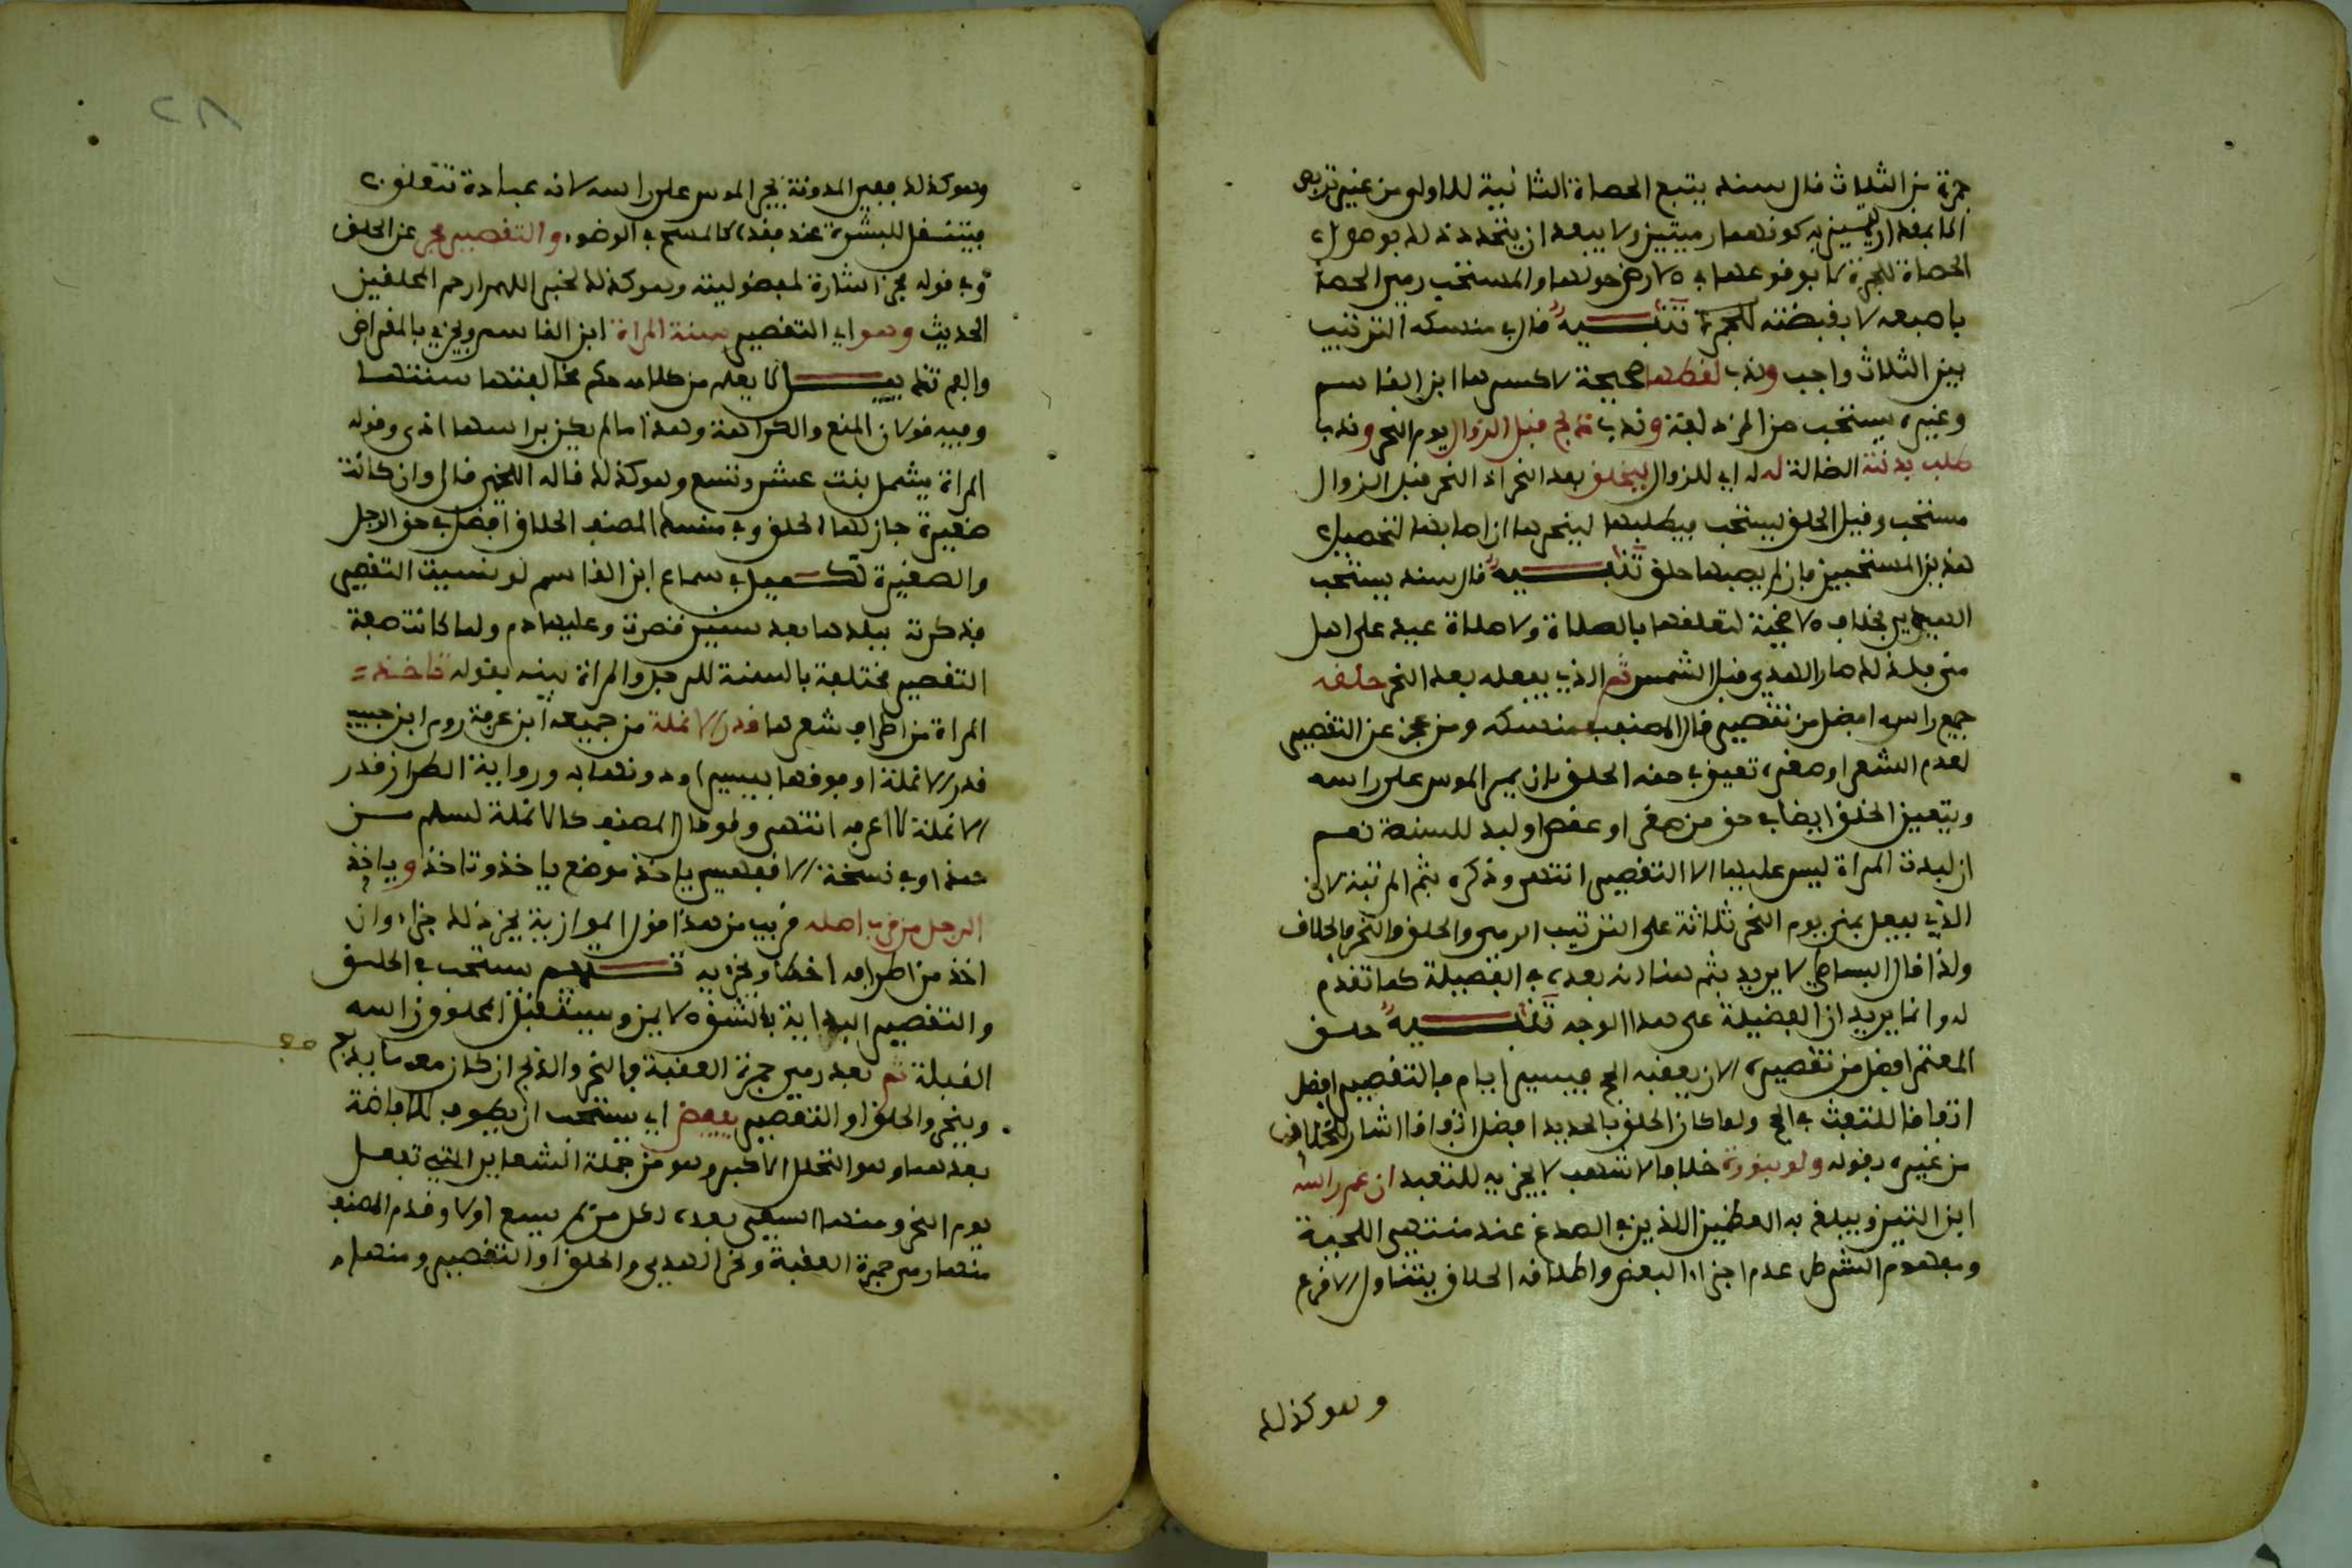 جمرة من الثلاث قال سند يتبع الحصاة الثانية للاولى من غير تربص
الحصاة للجمرة لا بوقوعها في الارض حولها والمستحب رمي الحصا
باصبعه لا بقبضته للجمرة تنبيه قال في منسكه الترتيب
بين الثلاث واجب وندب لقطها صحيحة لا كسرها ابن القاسم
وغيره يستحب من المزدلفة وندب ذبح قبل الزوال يوم النحر وندب
طلب بدنته الضالة له له اي للزوال ليحلق بعد النحر اذ النحر قبل الزوال
مستحب وقبل الحلق يستحب فيطلبها لينحرها ان اصابها لتحصيل
هذين المستحبين فان لم يصبها حلق تنبيه قال سند يستحب
الهدي بخلاف الاضحية لتعلقها بالصلاة ولا صلاة عيد على اهل
منى فلذلك صار الهدي قبل الشمس ثم الذي يفعله بعد النحر حلقه
جميع راسه افضل من تقصير قال المصنف منسكه ومن عجز عن التقصير
لعدم الشعر او صغره تعين في حقه الحلق بان يمر الموسى على راسه
ويتعين الحلق ايضا في حق من صفر او عقص او لبد للسنة نعم
ان لبدت المراة ليس عليها الا التقصير انتهى وذكره بثم المرتبة لان
الذي يفعل بمنى يوم النحر ثلاثة على الترتيب الرمي والحلق والنحر والحلاق
ولذا قال البساطي لا يريد بثم هنا انه بعده في الفضيلة كما تقدم
له وانما يريد ان الفضيلة على هذا الوجه تنبيه حلق
المعتمر افضل من تقصيره الا ان يعقبه الحج بيسير ايام فالتقصير افضل
اتفاقا للتفث في الحج ولما كان الحلق بالحديد افضل اتفاقا اشار للخلاف
من غيره بقوله ولو بنورة خلافا لاشهب لا يجزيه للتعبد ان عم راسه
ابن التين ويبلغ به العظمين الذين في الصدغ عند منتهى اللحية
ومفهوم الشرط عدم اجزاء البعض واطلاقه الحلاق يتناول الاقرع
وهو كذلك
٢٨
وهو كذلك ففي المدونة يجر الموسى على راسه لانه عبادة تتعلق
فينتقل للبشرة عند فقده كالمسح في الوضوء والتقصير مجز عن الحلق
وفي قوله مجز اشارة لمفضوليته وهو كذلك لخبر اللهم ارحم المحلقين
الحديث وهو اي التقصير سنة المراة ابن القاسم ويجزي بالمقراض
والفم تنبيه لم يعلم من كلامه حكم مخالفتها سنتها
وفيه قولان المنع والكراهة وهذا ما لم يكن براسها اذى وقوله
المراة يشمل بنت عشر وتسع وهو كذلك قاله اللخمي قال وان كانت
صغيرة جاز لها الحلق وفي منسك المصنف الحلاق افضل في حق الرجل
والصغيرة تكميل في سماع ابن القاسم لو نسيت التقصير
فذكرت ببلدها بعد سنين قصرت وعليها دم ولما كانت صفة
التقصير مختلفة بالسنة للرجل والمراة بينه بقوله تاخذ
المراة من اطراف شعرها قدر الانملة من جميعه ابن عرفة روى ابن حبيب
قدر الانملة او فوقها بيسير او دونها به ورواية الطراز قدر
الانملة لا اعرفه انتهى ولو قال المصنف كالانملة لسلم من
هذا وفي نسخة الاقفهسي ياخذ موضع ياخذ وتاخذ وياخذ
الرجل من قرب اصله قريب من هذا قول الموازية يجز ذلك جزا وان
اخذ من اطرافه اخطا ويجزيه تتميم يستحب في الحلق
والتقصير البداية بالشق الايمن ويستقبل المحلوق راسه
القبلة ثم بعد رمي جمرة العقبة والنحر والذبح ان كان معه ما يذبح
وينحر والحلق او التقصير يفيض اي يستحب ان يطوف للافاضة
بعدها وهو التحلل الاكبر وهو من جملة الشعاير التي تفعل
يوم النحر ومنها السعي بعده لكل من لم يسع اولا وقدم المصنف
منها رمي جمرة العقبة ونحر الهدي والحلق او التقصير ومنها